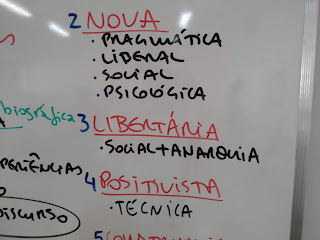 2 NOVA
• PRAGMÁTICA
• LIBERAL
• SOCIAL
• PSICOLÓGICA
biográfica
3 LIBERTÁRIA
• SOCIAL + ANARQUIA
4 POSITIVISTA
• TÉCNICA
DISCURSO
5